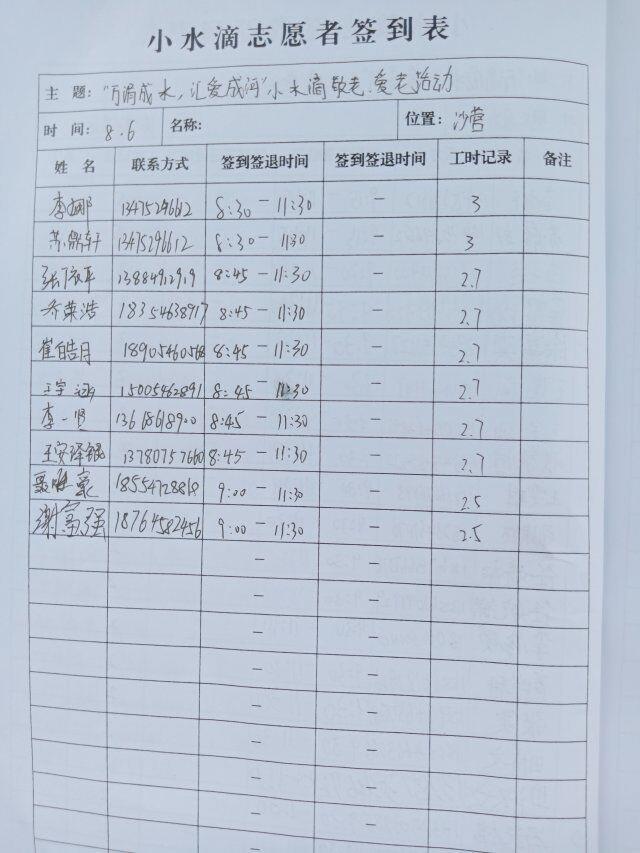 小水滴志愿者签到表
主 题：“万涓成水，汇爱成河”小水滴敬老.爱老活动
时 间：8.6 名称： 位置：沙营
姓 名 联系方式 签到签退时间 签到签退时间 工时记录 备注
李娜 13475296612 8:30 - 11:30 - 3
苏鼎轩 13475296612 8:30 - 11:30 - 3
张依平 13884912919 8:45 - 11:30 - 2.7
乔荣浩 18354638917 8:45 - 11:30 - 2.7
崔皓月 18905460568 8:45 - 11:30 - 2.7
王宇涵 15005462891 8:45 - 11:30 - 2.7
李一贤 13618618900 8:45 - 11:30 - 2.7
王安泽锟 13780757660 8:45 - 11:30 - 2.7
18554728818 9:00 - 11:30 - 2.5
谢富强 18764582456 9:00 - 11:30 - 2.5
- -
- -
- -
- -
- -
- -
- -
- -
- -